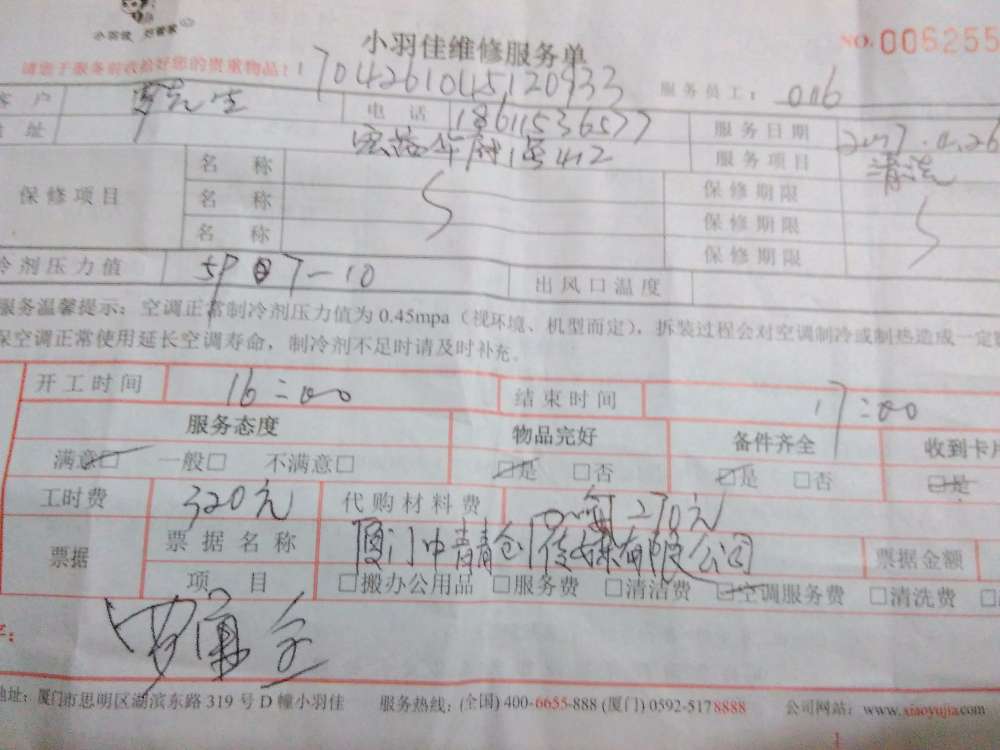 小羽佳 好管家
小羽佳维修服务单
NO. 006255
请您于服务前收拾好您的贵重物品！
1704261045120933
服务员工： 016
客户 罗先生 电话 18611536577 服务日期 2017.4.26
地址 宏路华府1号412 服务项目 清洗
保修项目 名称 保修期限
名称 保修期限
名称 保修期限
冷剂压力值 7-10 出风口温度
服务温馨提示：空调正常制冷剂压力值为0.45mpa（视环境、机型而定），拆装过程会对空调制冷或制热造成一定
保空调正常使用延长空调寿命，制冷剂不足时请及时补充。
开工时间 16:00 结束时间 17:00
服务态度 物品完好 备件齐全 收到卡片
满意□ 一般□ 不满意□ □是 □否 □是 □否 □是
工时费 320元 代购材料费 270元
票据 票据名称 厦门中青创传媒有限公司 票据金额
项目 □搬办公用品 □服务费 □清洁费 □空调服务费 □清洗费
字：
地址：厦门市思明区湖滨东路319号D幢小羽佳 服务热线：(全国) 400-6655-888 (厦门) 0592-5178888 公司网站：www.xiaoyujia.com
1